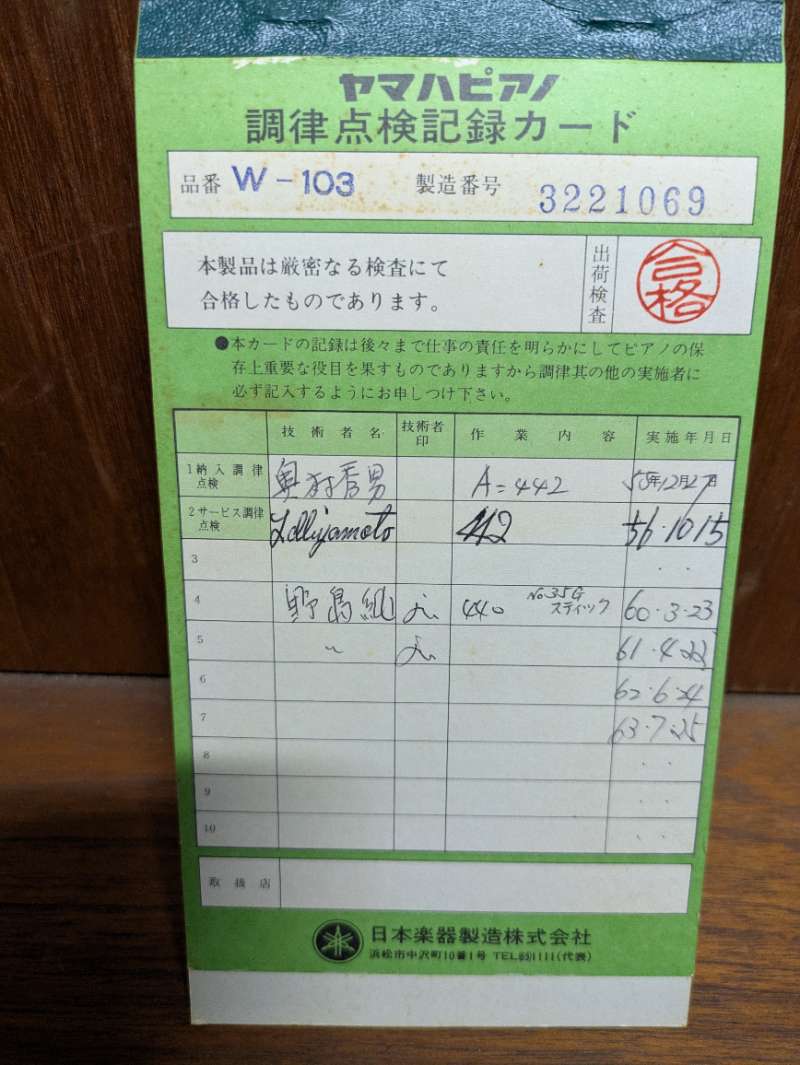 ヤマハピアノ
調律点検記録カード
品番 W-103 製造番号 3221069
本製品は厳密なる検査にて
合格したものであります。
出荷検査
合格
●本カードの記録は後々まで仕事の責任を明らかにしてピアノの保
存上重要な役目を果すものでありますから調律其の他の実施者に
必ず記入するようにお申しつけ下さい。
技術者名 技術者印 作業内容 実施年月日
1 納入調律点検 奥村秀男 A=442 55年12月27日
2 サービス調律点検 442 56・10・15
3 ・・
4 野島 440 No.35G スティック 60・3・23
5 〃 61・4・22
6 62・6・24
7 63・7・25
8 ・・
9 ・・
10 ・・
取扱店
日本楽器製造株式会社
浜松市中沢町10番1号 TEL 1111(代表)